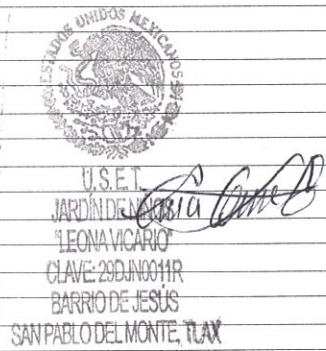 ESTADOS UNIDOS MEXICANOS
U.S.E.T.
JARDÍN DE
"LEONA VICARIO"
CLAVE: 29DJN0011R
BARRIO DE JESÚS
SAN PABLO DEL MONTE, TLAX